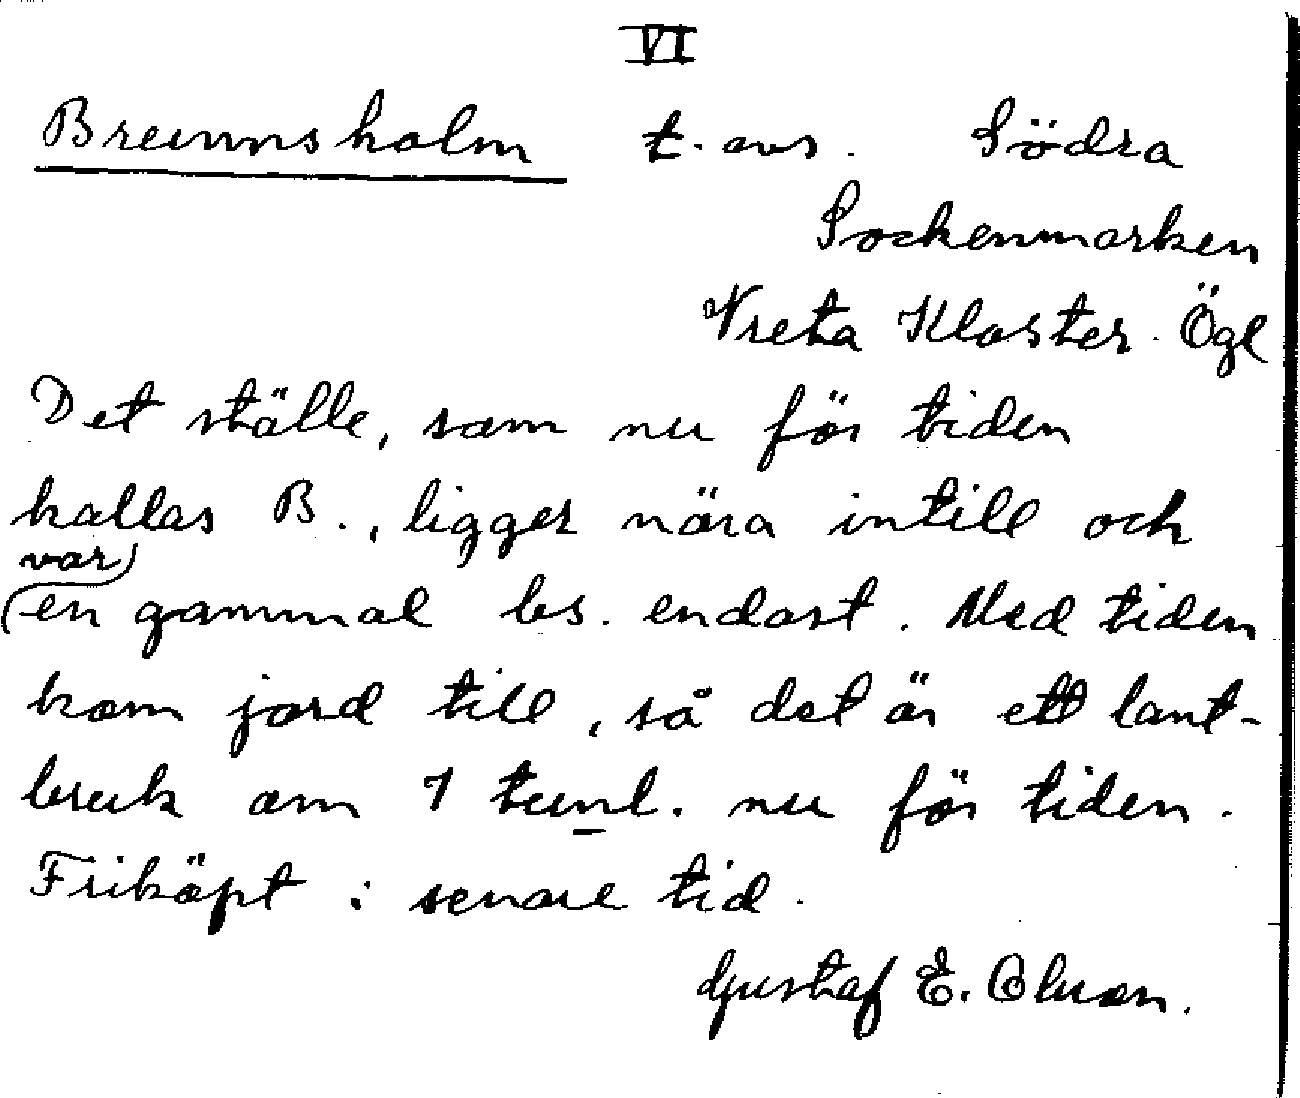 VI
Brunnsholm t. avs. Södra
Sockenmarken
Vreta Kloster. Ögl
Det ställe, som nu för tiden
kallas B., ligger nära intill och
var
en gammal bs. endast. Med tiden
kom jord till, så det är ett lant-
bruk om 7 tunl. nu för tiden.
Friköpt i senare tid.
Gustaf E. Olsson.